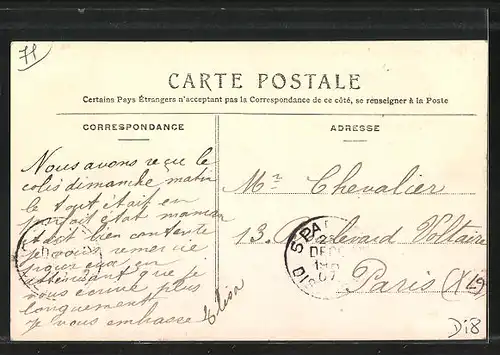 71
CARTE POSTALE
Certains Pays Étrangers n'acceptant pas la Correspondance de ce côté, se renseigner à la Poste
CORRESPONDANCE
ADRESSE
Nous avons reçu le
colis dimanche matin
le tout était en
parfait état maman
était bien contente
je vous remercie
pour eux en
attendant que je
vous écrive plus
longuement
je vous embrasse Elisa
Mr Chevalier
13 Boulevard Voltaire
Paris (XI)
PA
DIS
07
Di8